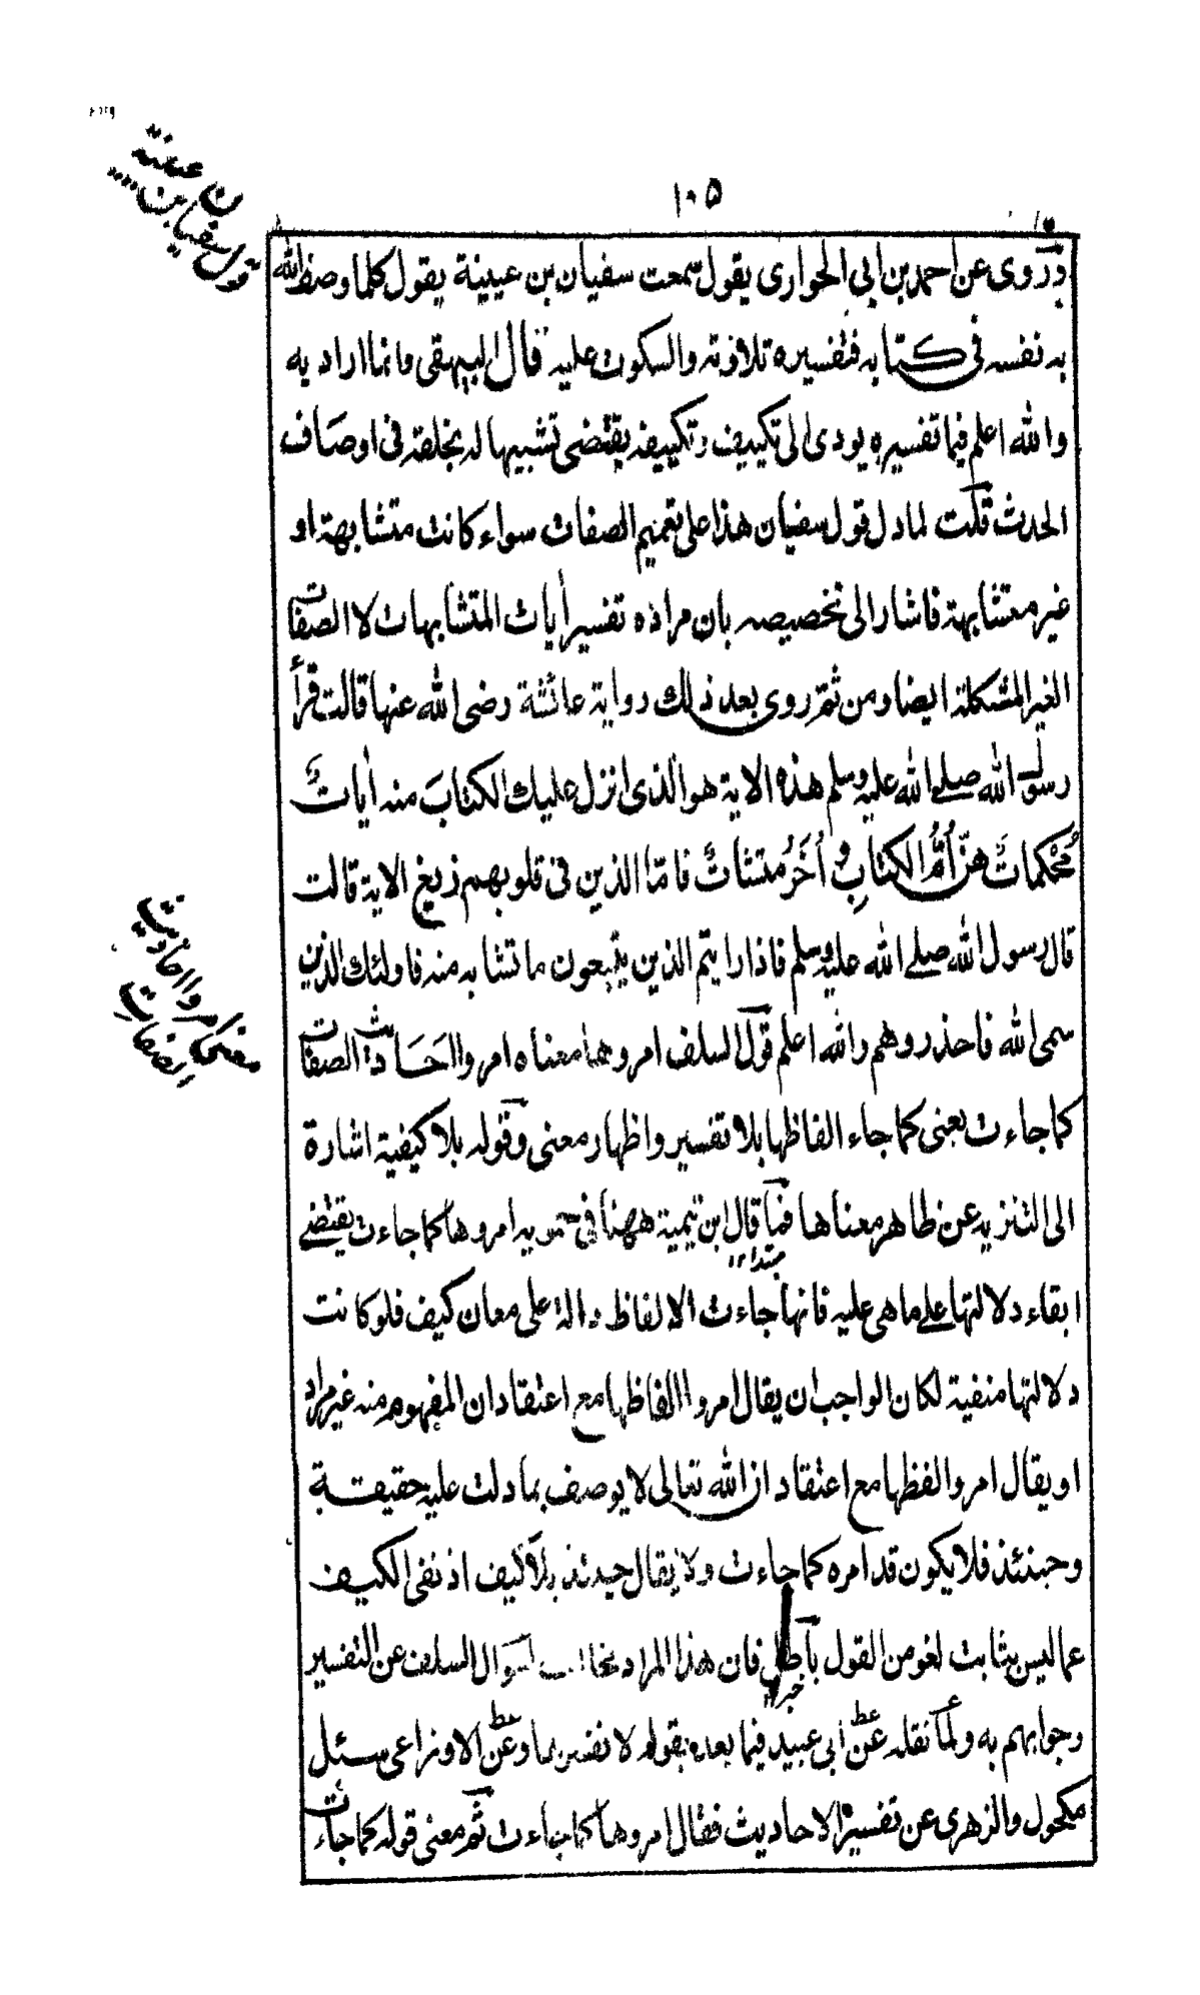 ١٠٥
قول سفيان بن عيينة
وروى عن احمد بن ابي الحوارى يقول سمعت سفيان بن عيينة يقول كلما وصف الله
به نفسه فى كتابه فتفسيره تلاوته والسكوت عليه قال البيهقى وانما اراد به
والله اعلم فيما تفسيره يودى الى تكييف وتكييفه يقتضى تشبيها له بخلقه فى اوصاف
الحدث قلت لما دل قول سفيان هذا على تعميم الصفات سواء كانت متشابهة او
غير متشابهة فاشار الى تخصيصه بان مراده تفسير أيات المتشابهات لا الصفات
الغير المشكلة ايضا ومن ثم روى بعد ذلك رواية عائشة رضى الله عنها قالت قرأ
رسول الله صلے الله عليه وسلم هذه الاية هو الذى انزل عليك الكتابَ منه أياتٌ
مُحْكماتٌ هنّ اُمُّ الكتابِ و اُخَرُ متشاتٌ فامّا الذين فى قلوبهم زيغ الاية قالت
قال رسول الله صلے الله عليه وسلم فاذا رايتم الذين يتبعون ما تشابه منه فاولئك الذين
سمى الله فاحذروهم والله اعلم قول السلف امروها معناه امروا احاديث الصفات
معنى امروا احاديث
الصفات
كما جاءت يعنى كما جاء الفاظها بلا تفسير واظهار معنى وقوله بلا كيفية اشارة
الى التنزيه عن ظاهر معناها فما قال ابن تيمية ههنا فى حمويه امروها كما جاءت يقتضے
مبتدا ١٢
ابقاء دلالتها علے ماهى عليه فانها جاءت الالفاظ دالة على معان كيف فلو كانت
دلالتها منفية لكان الواجب ان يقال امروا الفاظها مع اعتقاد ان المفهوم منه غير مراد
او يقال امروا لفظها مع اعتقاد ان الله تعالى لا يوصف بما دلت عليه حقيقة
وحينئذ فلا يكون قد امره كما جاءت ولا يقال حينئذ بلا كيف اذ نفى الكيف
عما ليس بثابت لغو من القول باطل فان هذا المراد يخالف لسوال السلف عن التفسير
خبر ١٢
وجوابهم به ولما نقله عن أبى عبيد فيما بعده بقوله لا نفسرها وعن الاوزاعى سئل
مكحول والزهرى عن تفسير الاحاديث فقال امروها كما جاءت ثم معنى قوله كما جاءت